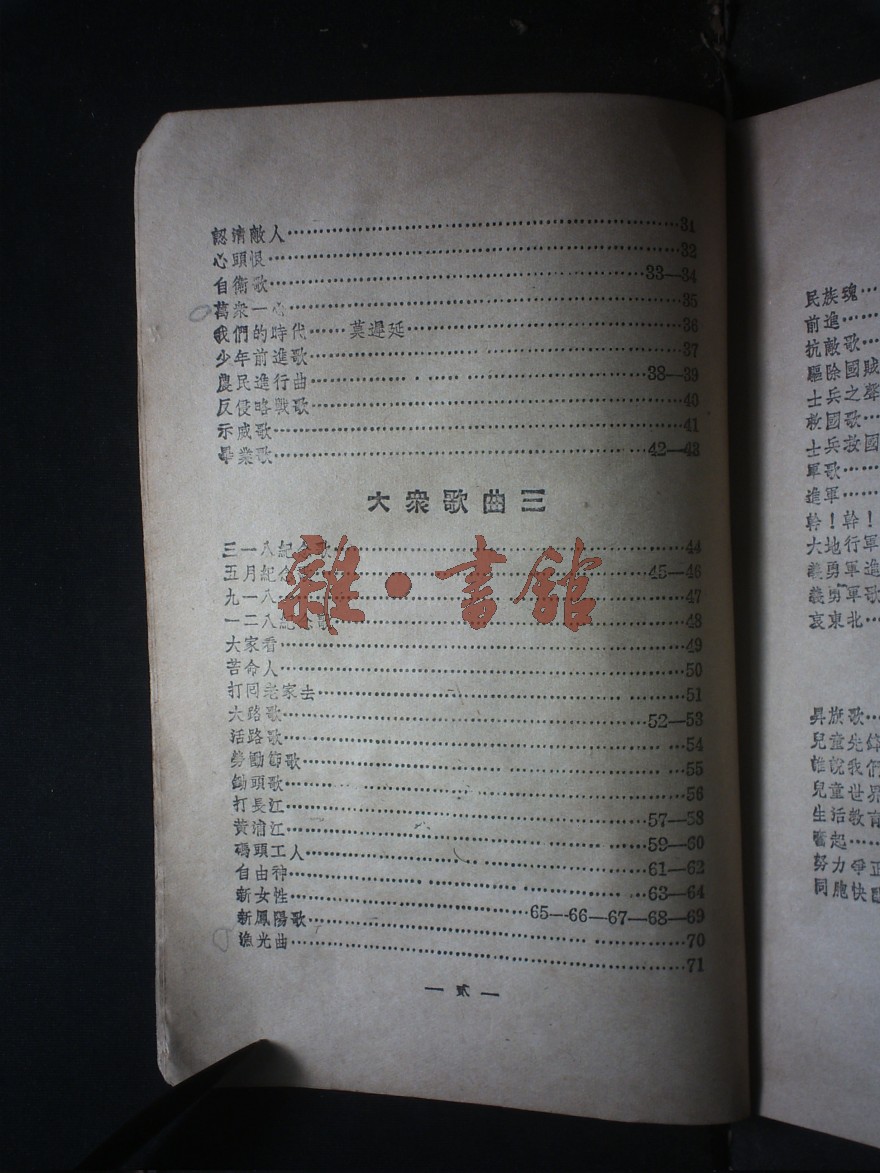 認清敵人……31
心頭恨……32
自衛歌……33—34
萬衆一心……35
我們的時代……莫遲延……36
少年前進歌……37
農民進行曲……38—39
反侵略戰歌……40
示威歌……41
畢業歌……42—43
大衆歌曲三
三一八紀念歌……44
五月紀念……45—46
九一八……47
一二八紀念歌……48
大家看……49
苦命人……50
打回老家去……51
大路歌……52—53
活路歌……54
勞働節歌……55
鋤頭歌……56
打長江……57—58
黃浦江……59—60
碼頭工人……61—62
自由神……63—64
新女性……65—66—67—68—69
新鳳陽歌……70
漁光曲……71
— 貳 —
雜·書館
民族魂…
前進…
抗敵歌…
驅除國賊
士兵之聲
救國歌…
士兵救國
軍歌…
進軍…
幹！幹！
大地行軍
義勇軍進
義勇軍歌
哀東北…
昇旗歌…
兒童先鋒
誰說我們
兒童世界
生活教育
奮起…
努力爭正
同胞快